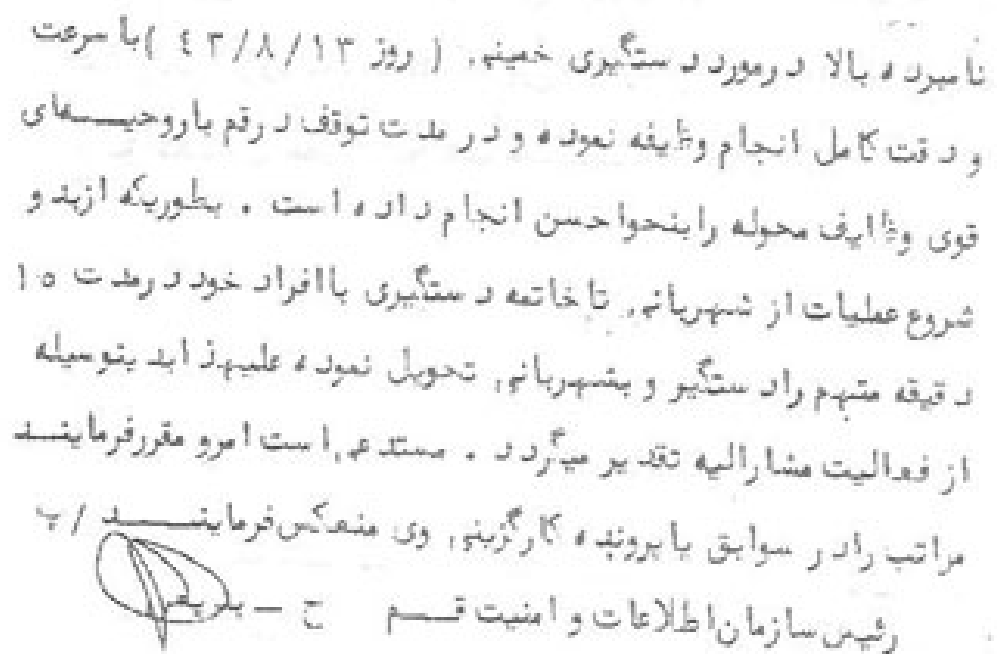 نامبرده بالا درمورد دستگیری خمینی ( روز ۴۳/۸/۱۳ )با سرعت
و دقت کامل انجام وظیفه نموده و در مدت توقف درقم باروحیـــه‌های
قوی وظایف محوله رابنحواحسن انجام داده است . بطوریکه ازبدو
شروع عملیات از شهربانی تا خاتمه دستگیری باافراد خود درمدت ۱۵
دقیقه متهم رادستگیر و بشهربانی تحویل نموده علیهذا بدینوسیله
از فعالیت مشارالیه تقدیر میگردد . مستدعی است امرو مقررفرماینــد
مراتب رادر سوابق یا پرونده کارگزینی وی منعکس فرماینـــــد /پ
رئیس سازمان اطلاعات و امنیت قـــم ح ــ